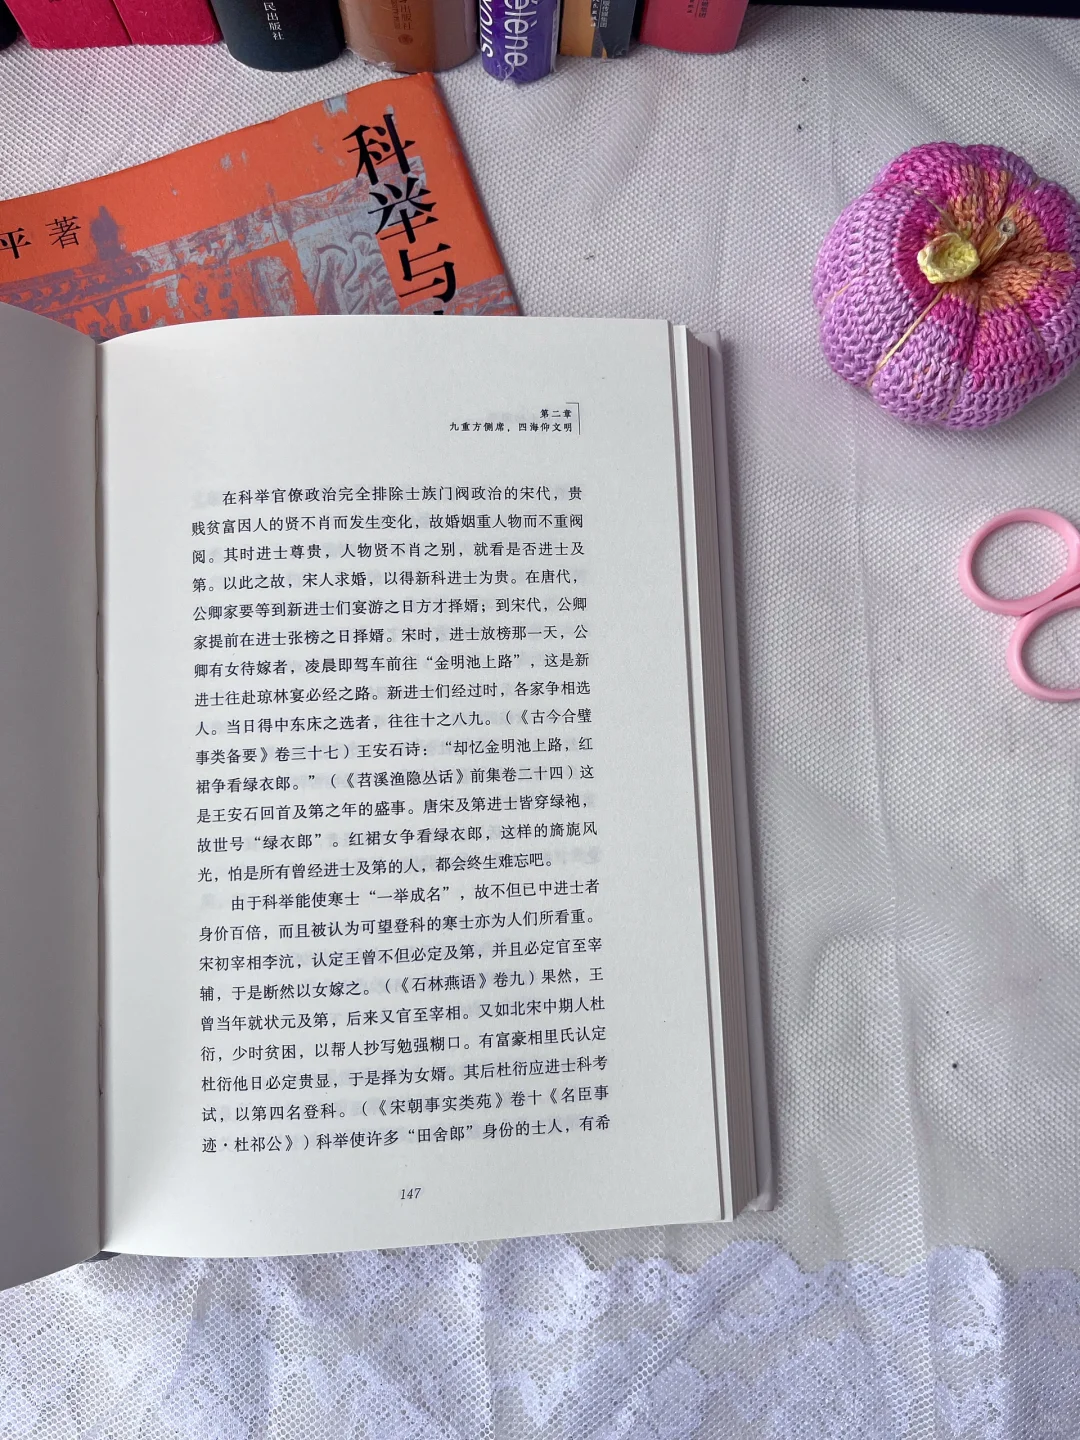 民出版社
出版社
hélène
科举与
平 著
第二章
九重方侧席，四海仰文明
在科举官僚政治完全排除士族门阀政治的宋代，贵
贱贫富因人的贤不肖而发生变化，故婚姻重人物而不重阀
阅。其时进士尊贵，人物贤不肖之别，就看是否进士及
第。以此之故，宋人求婚，以得新科进士为贵。在唐代，
公卿家要等到新进士们宴游之日方才择婿；到宋代，公卿
家提前在进士张榜之日择婿。宋时，进士放榜那一天，公
卿有女待嫁者，凌晨即驾车前往“金明池上路”，这是新
进士往赴琼林宴必经之路。新进士们经过时，各家争相选
人。当日得中东床之选者，往往十之八九。（《古今合璧
事类备要》卷三十七）王安石诗：“却忆金明池上路，红
裙争看绿衣郎。”（《苕溪渔隐丛话》前集卷二十四）这
是王安石回首及第之年的盛事。唐宋及第进士皆穿绿袍，
故世号“绿衣郎”。红裙女争看绿衣郎，这样的旖旎风
光，怕是所有曾经进士及第的人，都会终生难忘吧。
由于科举能使寒士“一举成名”，故不但已中进士者
身价百倍，而且被认为可望登科的寒士亦为人们所看重。
宋初宰相李沆，认定王曾不但必定及第，并且必定官至宰
辅，于是断然以女嫁之。（《石林燕语》卷九）果然，王
曾当年就状元及第，后来又官至宰相。又如北宋中期人杜
衍，少时贫困，以帮人抄写勉强糊口。有富豪相里氏认定
杜衍他日必定贵显，于是择为女婿。其后杜衍应进士科考
试，以第四名登科。（《宋朝事实类苑》卷十《名臣事
迹·杜祁公》）科举使许多“田舍郎”身份的士人，有希
147